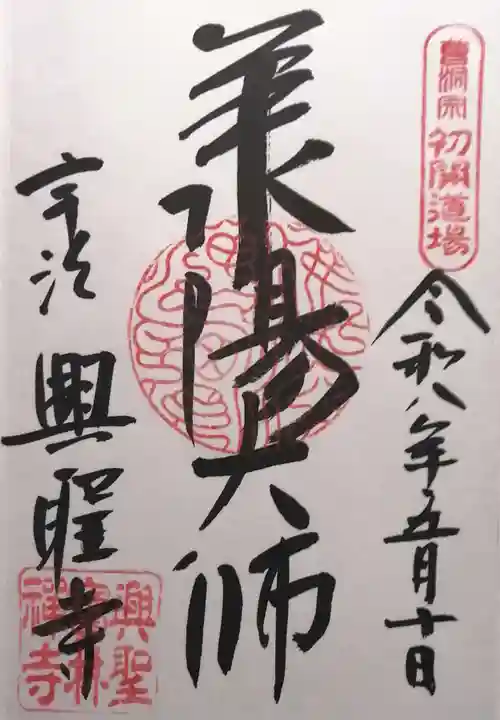 曹洞宗 初開道場
令和八年五月十日
承陽大師
宇治 興聖寺
興聖寶林禅寺